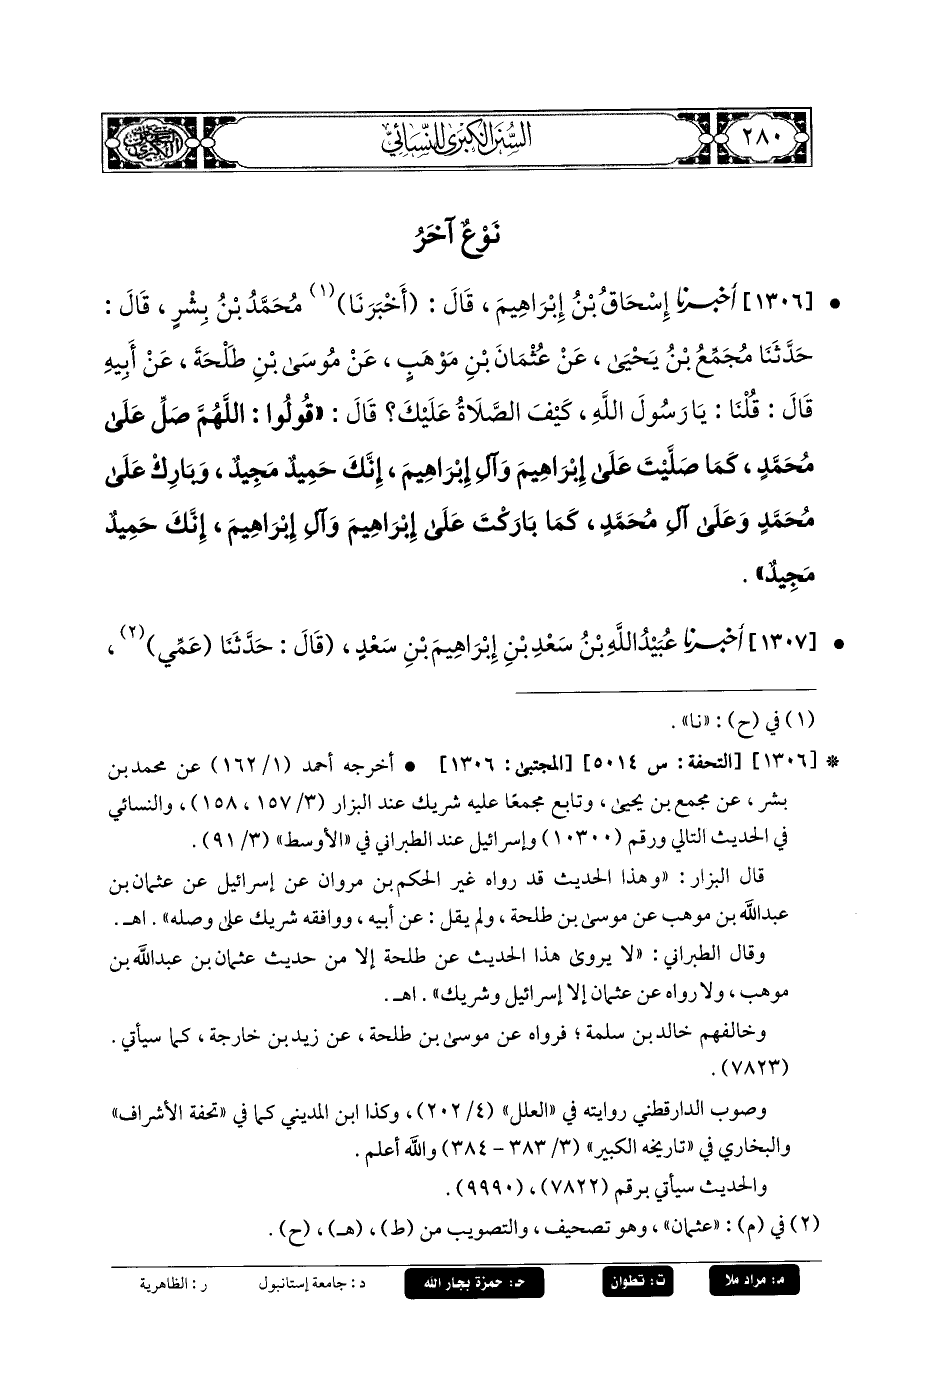 السنن الكبرى للنسائي
٢٨٠
نَوْعٌ آخَرُ
• [١٣٠٦] أَخْبَرَنَا إِسْحَاقُ بْنُ إِبْرَاهِيمَ ، قَالَ : (أَخْبَرَنَا)(١) مُحَمَّدُ بْنُ بِشْرٍ ، قَالَ :
حَدَّثَنَا مُجَمِّعُ بْنُ يَحْيَىٰ ، عَنْ عُثْمَانَ بْنِ مَوْهَبٍ ، عَنْ مُوسَىٰ بْنِ طَلْحَةَ ، عَنْ أَبِيهِ
قَالَ : قُلْنَا : يَا رَسُولَ اللَّهِ ، كَيْفَ الصَّلَاةُ عَلَيْكَ؟ قَالَ : «قُولُوا : اللَّهُمَّ صَلِّ عَلَىٰ
مُحَمَّدٍ ، كَمَا صَلَّيْتَ عَلَىٰ إِبْرَاهِيمَ وَآلِ إِبْرَاهِيمَ ، إِنَّكَ حَمِيدٌ مَجِيدٌ ، وَبَارِكْ عَلَىٰ
مُحَمَّدٍ وَعَلَىٰ آلِ مُحَمَّدٍ ، كَمَا بَارَكْتَ عَلَىٰ إِبْرَاهِيمَ وَآلِ إِبْرَاهِيمَ ، إِنَّكَ حَمِيدٌ
مَجِيدٌ» .
• [١٣٠٧] أَخْبَرَنَا عُبَيْدُ اللَّهِ بْنُ سَعْدِ بْنِ إِبْرَاهِيمَ بْنِ سَعْدٍ ، (قَالَ : حَدَّثَنَا (عَمِّي)(٢) ،
(١) في (ح) : «نا» .
* [١٣٠٦] [التحفة : س ٥٠١٤] [المجتبىٰ : ١٣٠٦] • أخرجه أحمد (١/ ١٦٢) عن محمد بن
بشر ، عن مجمع بن يحيىٰ ، وتابع مجمعًا عليه شريك عند البزار (٣/ ١٥٧ ، ١٥٨) ، والنسائي
في الحديث التالي ورقم (١٠٣٠٠) وإسرائيل عند الطبراني في «الأوسط» (٣/ ٩١) .
قال البزار : «وهذا الحديث قد رواه غير الحكم بن مروان عن إسرائيل عن عثمان بن
عبدالله بن موهب عن موسىٰ بن طلحة ، ولم يقل : عن أبيه ، ووافقه شريك علىٰ وصله» . اهـ .
وقال الطبراني : «لا يروىٰ هذا الحديث عن طلحة إلا من حديث عثمان بن عبدالله بن
موهب ، ولا رواه عن عثمان إلا إسرائيل وشريك» . اهـ .
وخالفهم خالد بن سلمة ؛ فرواه عن موسىٰ بن طلحة ، عن زيد بن خارجة ، كما سيأتي .
(٧٨٢٣) .
وصوب الدارقطني روايته في «العلل» (٤/ ٢٠٢) ، وكذا ابن المديني كما في «تحفة الأشراف»
والبخاري في «تاريخه الكبير» (٣/ ٣٨٣ - ٣٨٤) والله أعلم .
والحديث سيأتي برقم (٧٨٢٢) ، (٩٩٩٠) .
(٢) في (م) : «عثمان» ، وهو تصحيف ، والتصويب من (ط) ، (هـ) ، (ح) .
م : مراد ملا ت : تطوان حـ : حمزة بجار الله د : جامعة إستانبول ر : الظاهرية